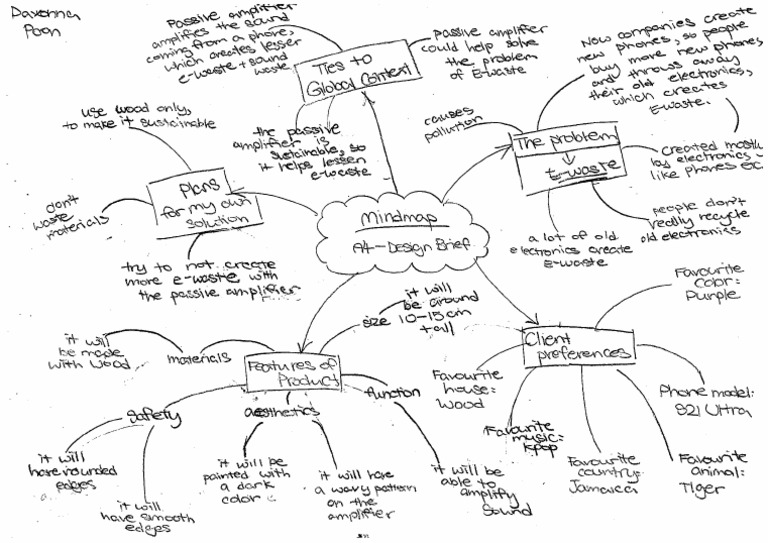 Davonna
Poon
Passive amplifier
amplifies the sound
coming from a phone,
which creates lesser
e-waste + sound
waste
Ties to
Global Context
passive amplifier
could help solve
the problem
of E-waste
the passive
amplifier is
sustainable, so
it helps lessen
e-waste
Now companies create
new phones, so people
buy more new phones,
and throws away
their old electronics,
which creates
E-waste.
causes
pollution
The problem
E-waste
created mostly
by electronics
like phones etc.
people don't
really recycle
old electronics
a lot of old
electronics create
E-waste
use wood only,
to make it sustainable
Plans
for my own
solution
don't
waste
materials
try to not create
more e-waste with
the passive amplifier
Mindmap
A4-Design Brief
it will
be around
size 10-15cm
tall
Features of
Product
materials
it will
be made
with wood
Safety
it will
have rounded
edges
it will
have smooth
edges
aesthetics
it will be
painted with
a dark
color
it will have
a wavy pattern
on the
amplifier
function
it will be
able to
amplify
sound
Client
preferences
Favourite
color:
Purple
Phone model:
S21 Ultra
Favourite
animal:
Tiger
Favourite
country:
Jamaica
Favourite
music:
kpop
Favourite
house:
wood